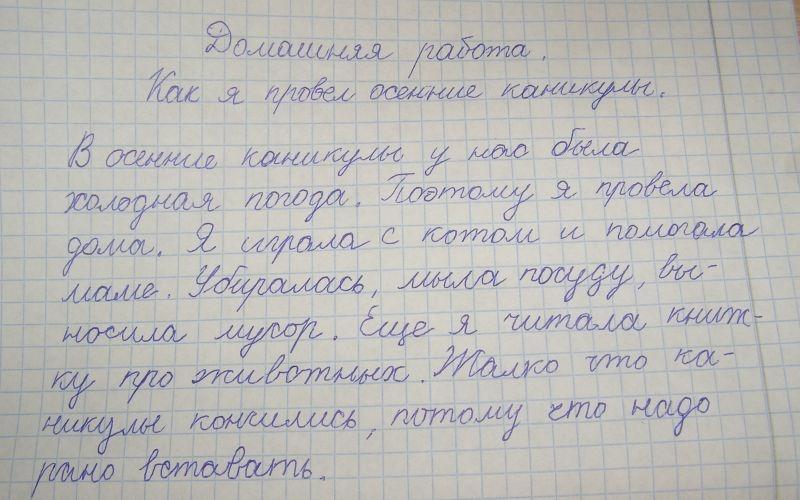 Домашняя работа.
Как я провел осенние каникулы.
В осенние каникулы у нас была
холодная погода. Поэтому я провела
дома. Я играла с котом и помогала
маме. Убиралась, мыла посуду, вы-
носила мусор. Еще я читала книж-
ку про животных. Жалко что ка-
никулы кончились, потому что надо
рано вставать.